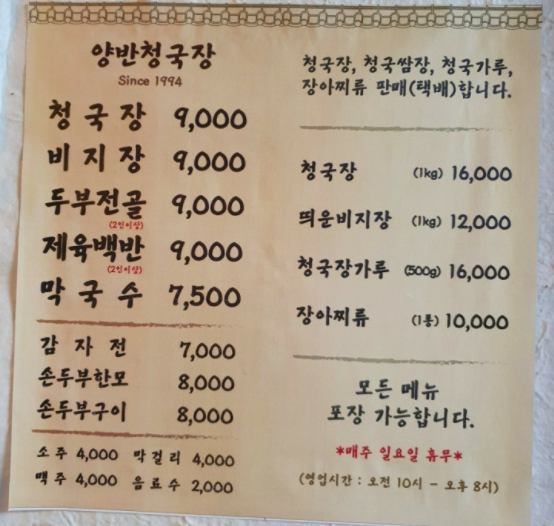 양반청국장
Since 1994
청국장 9,000
비지장 9,000
두부전골 9,000
(2인이상)
제육백반 9,000
(2인이상)
막국수 7,500
감자전 7,000
손두부한모 8,000
손두부구이 8,000
소주 4,000 막걸리 4,000
맥주 4,000 음료수 2,000
청국장, 청국쌈장, 청국가루,
장아찌류 판매(택배)합니다.
청국장 (1kg) 16,000
띄운비지장 (1kg) 12,000
청국장가루 (500g) 16,000
장아찌류 (1통) 10,000
모든 메뉴
포장 가능합니다.
*매주 일요일 휴무*
(영업시간 : 오전 10시 - 오후 8시)